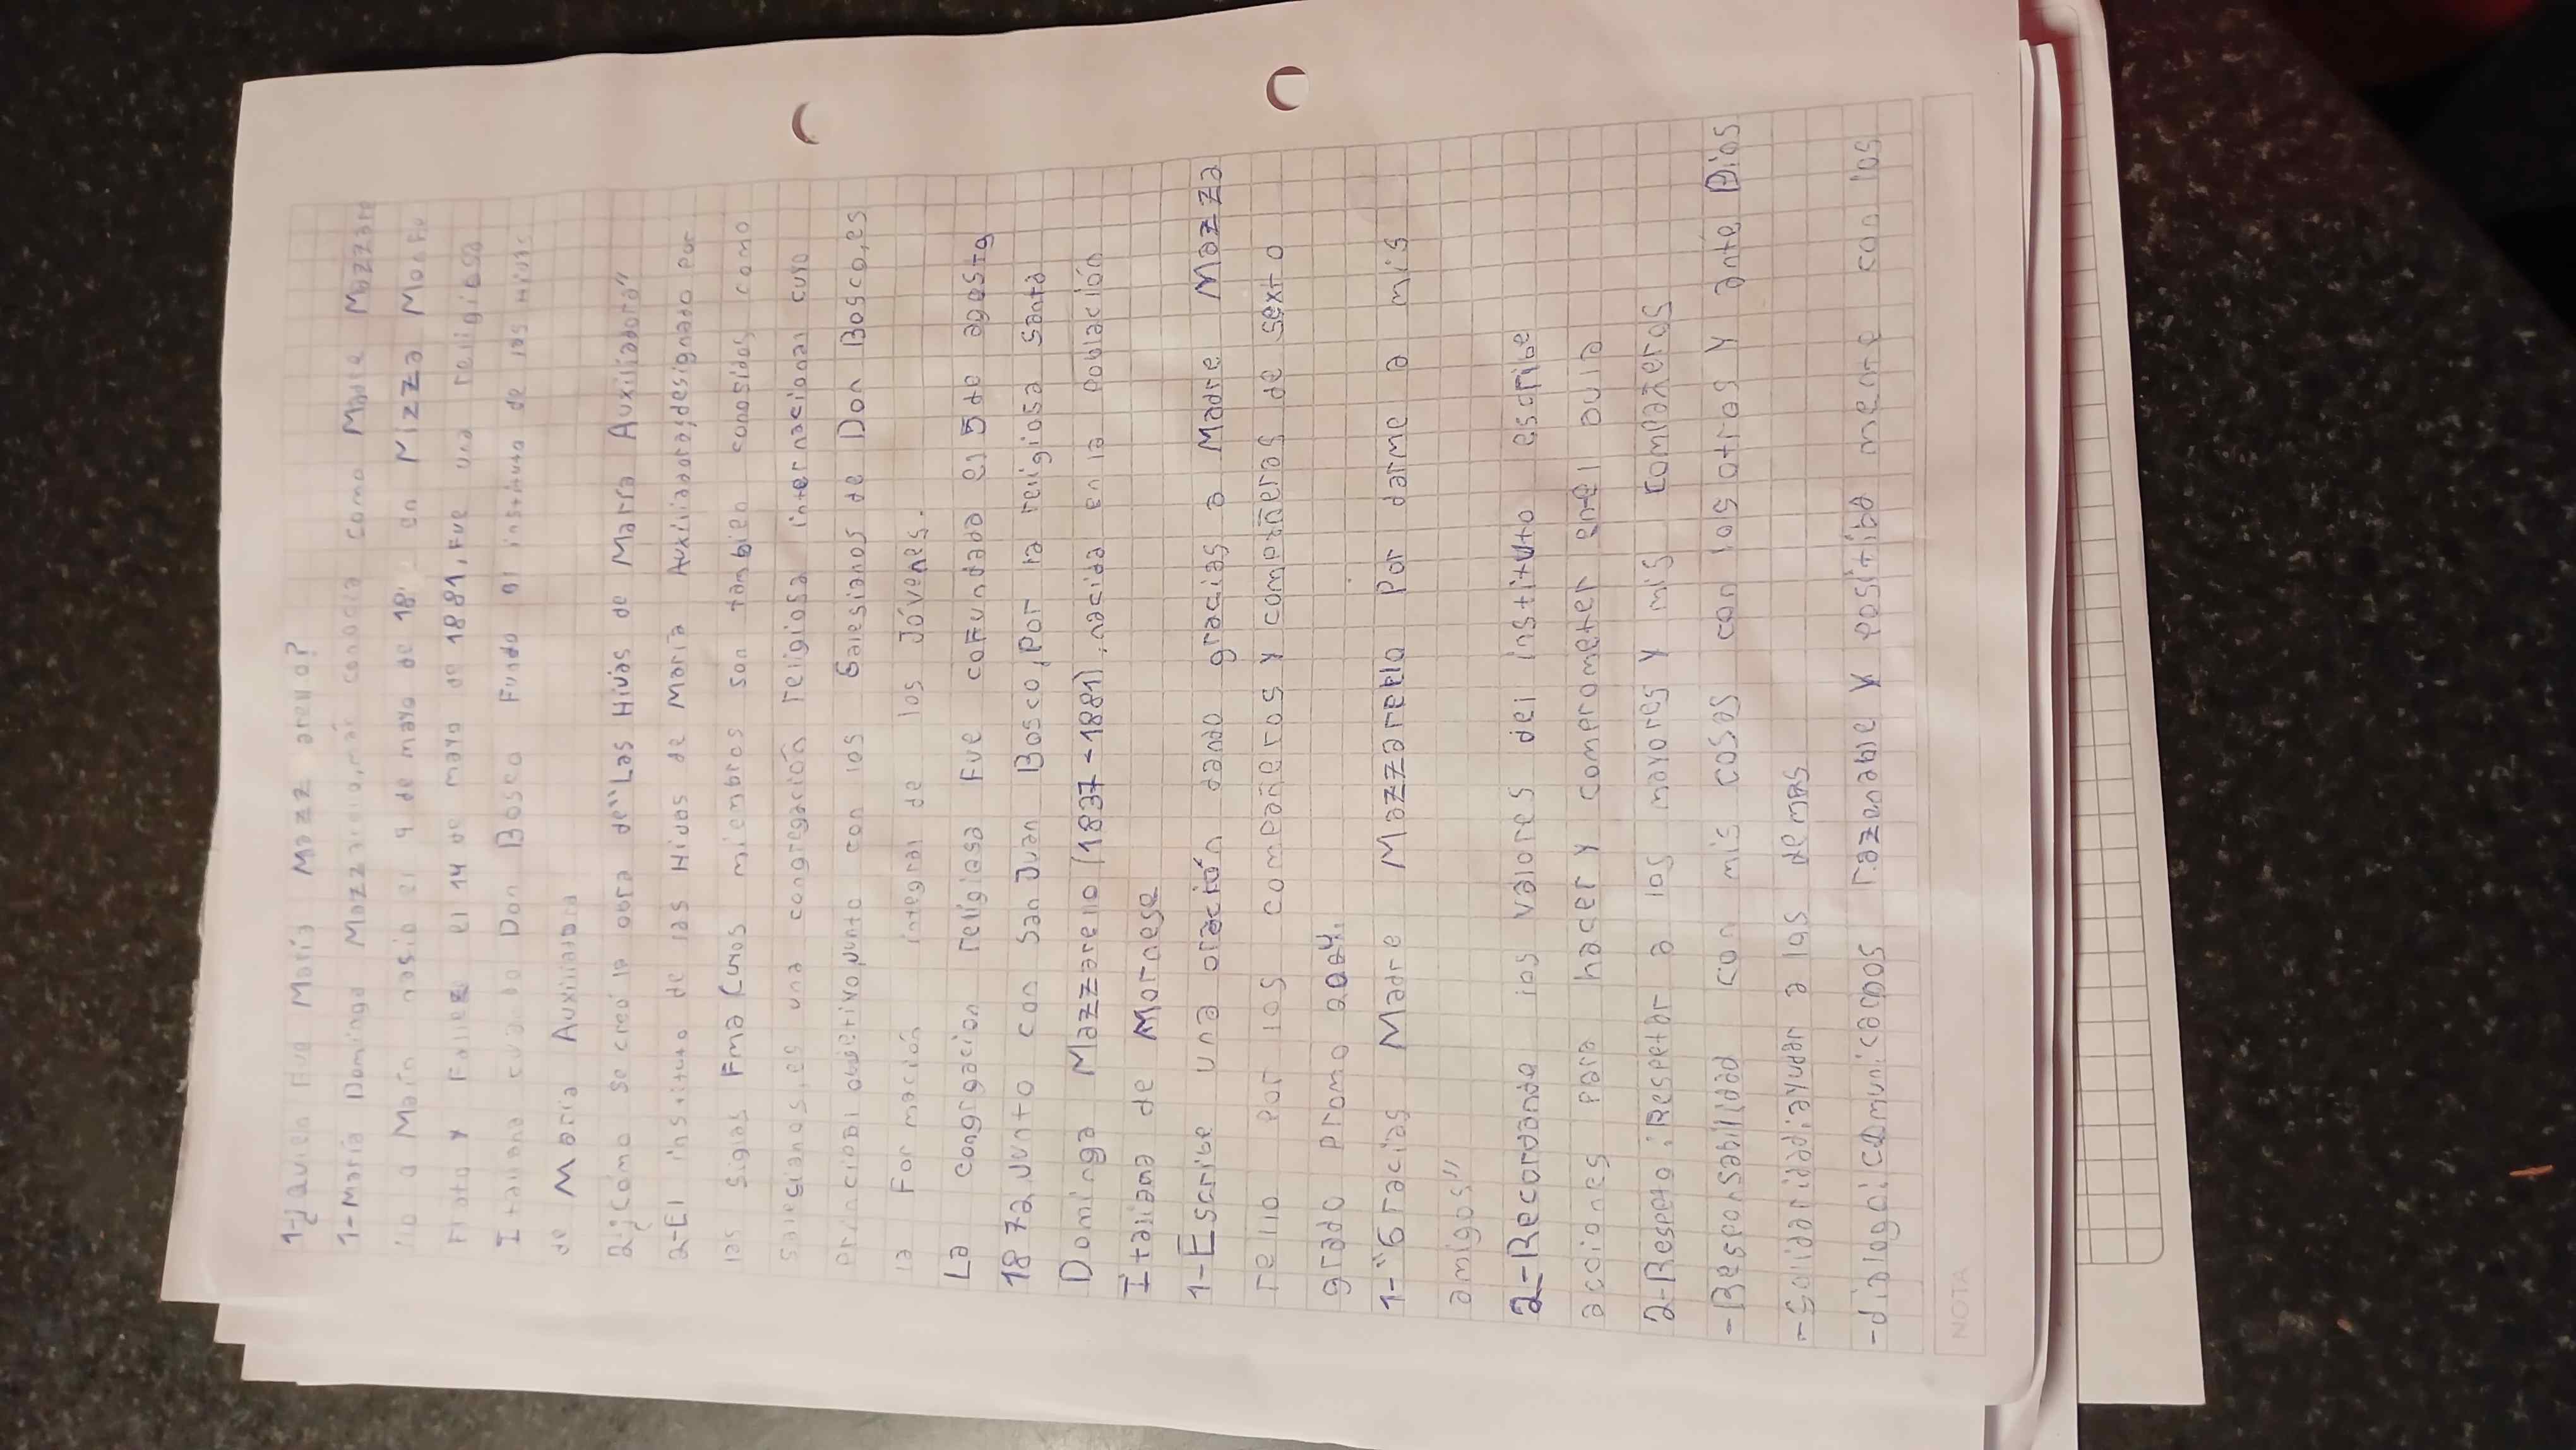 1-¿quien fue María Mazz arello?
1-María Dominga Mazzarello, más conocia como Madre Mazzare
llo o Maín nasio el 9 de mayo de 18 en Mizza Monfe
rrato y Fallez el 14 de mayo de 1881, Fue una religiosa
Italiana cuando Don Bosco Fundo el instituto de las Hijas
de María Auxiliadora
2-¿Cómo se creó la obra de "Las Hijas de María Auxiliadora"
2-El instituto de las Hijas de María Auxiliadora, designado por
las siglas Fma (unos miembros son tambien conosidas como
salesianas, es una congregación religiosa internacional cuyo
principal objetivo, junto con los Salesianos de Don Bosco, es
la For mación integral de los Jóvenes.
La congrgacion religiosa Fue cofundada el 5 de agosto
1872 Junto con San Juan Bosco, Por la religiosa santa
Dominga Mazzarello (1837-1881), nacida en la población
Italiana de Mornese
1-Escribe una oración dando gracias a Madre Mazza
rello por los compañeros y compañeras de sexto
grado promo 2024.
1-"Gracias Madre Mazzarello Por darme a mis
amigos"
2-Recordando los valores del instituto escribe
acciones para hacer y comprometer en el aula
2-Respeto: Respetar a los mayores y mis compañeros
-Responsabilidad con mis cosas con los otros y ante Dios
-Solidaridad: ayudar a los demas
-dialogo: comunicarnos razonable y positiba mente con los
NOTA